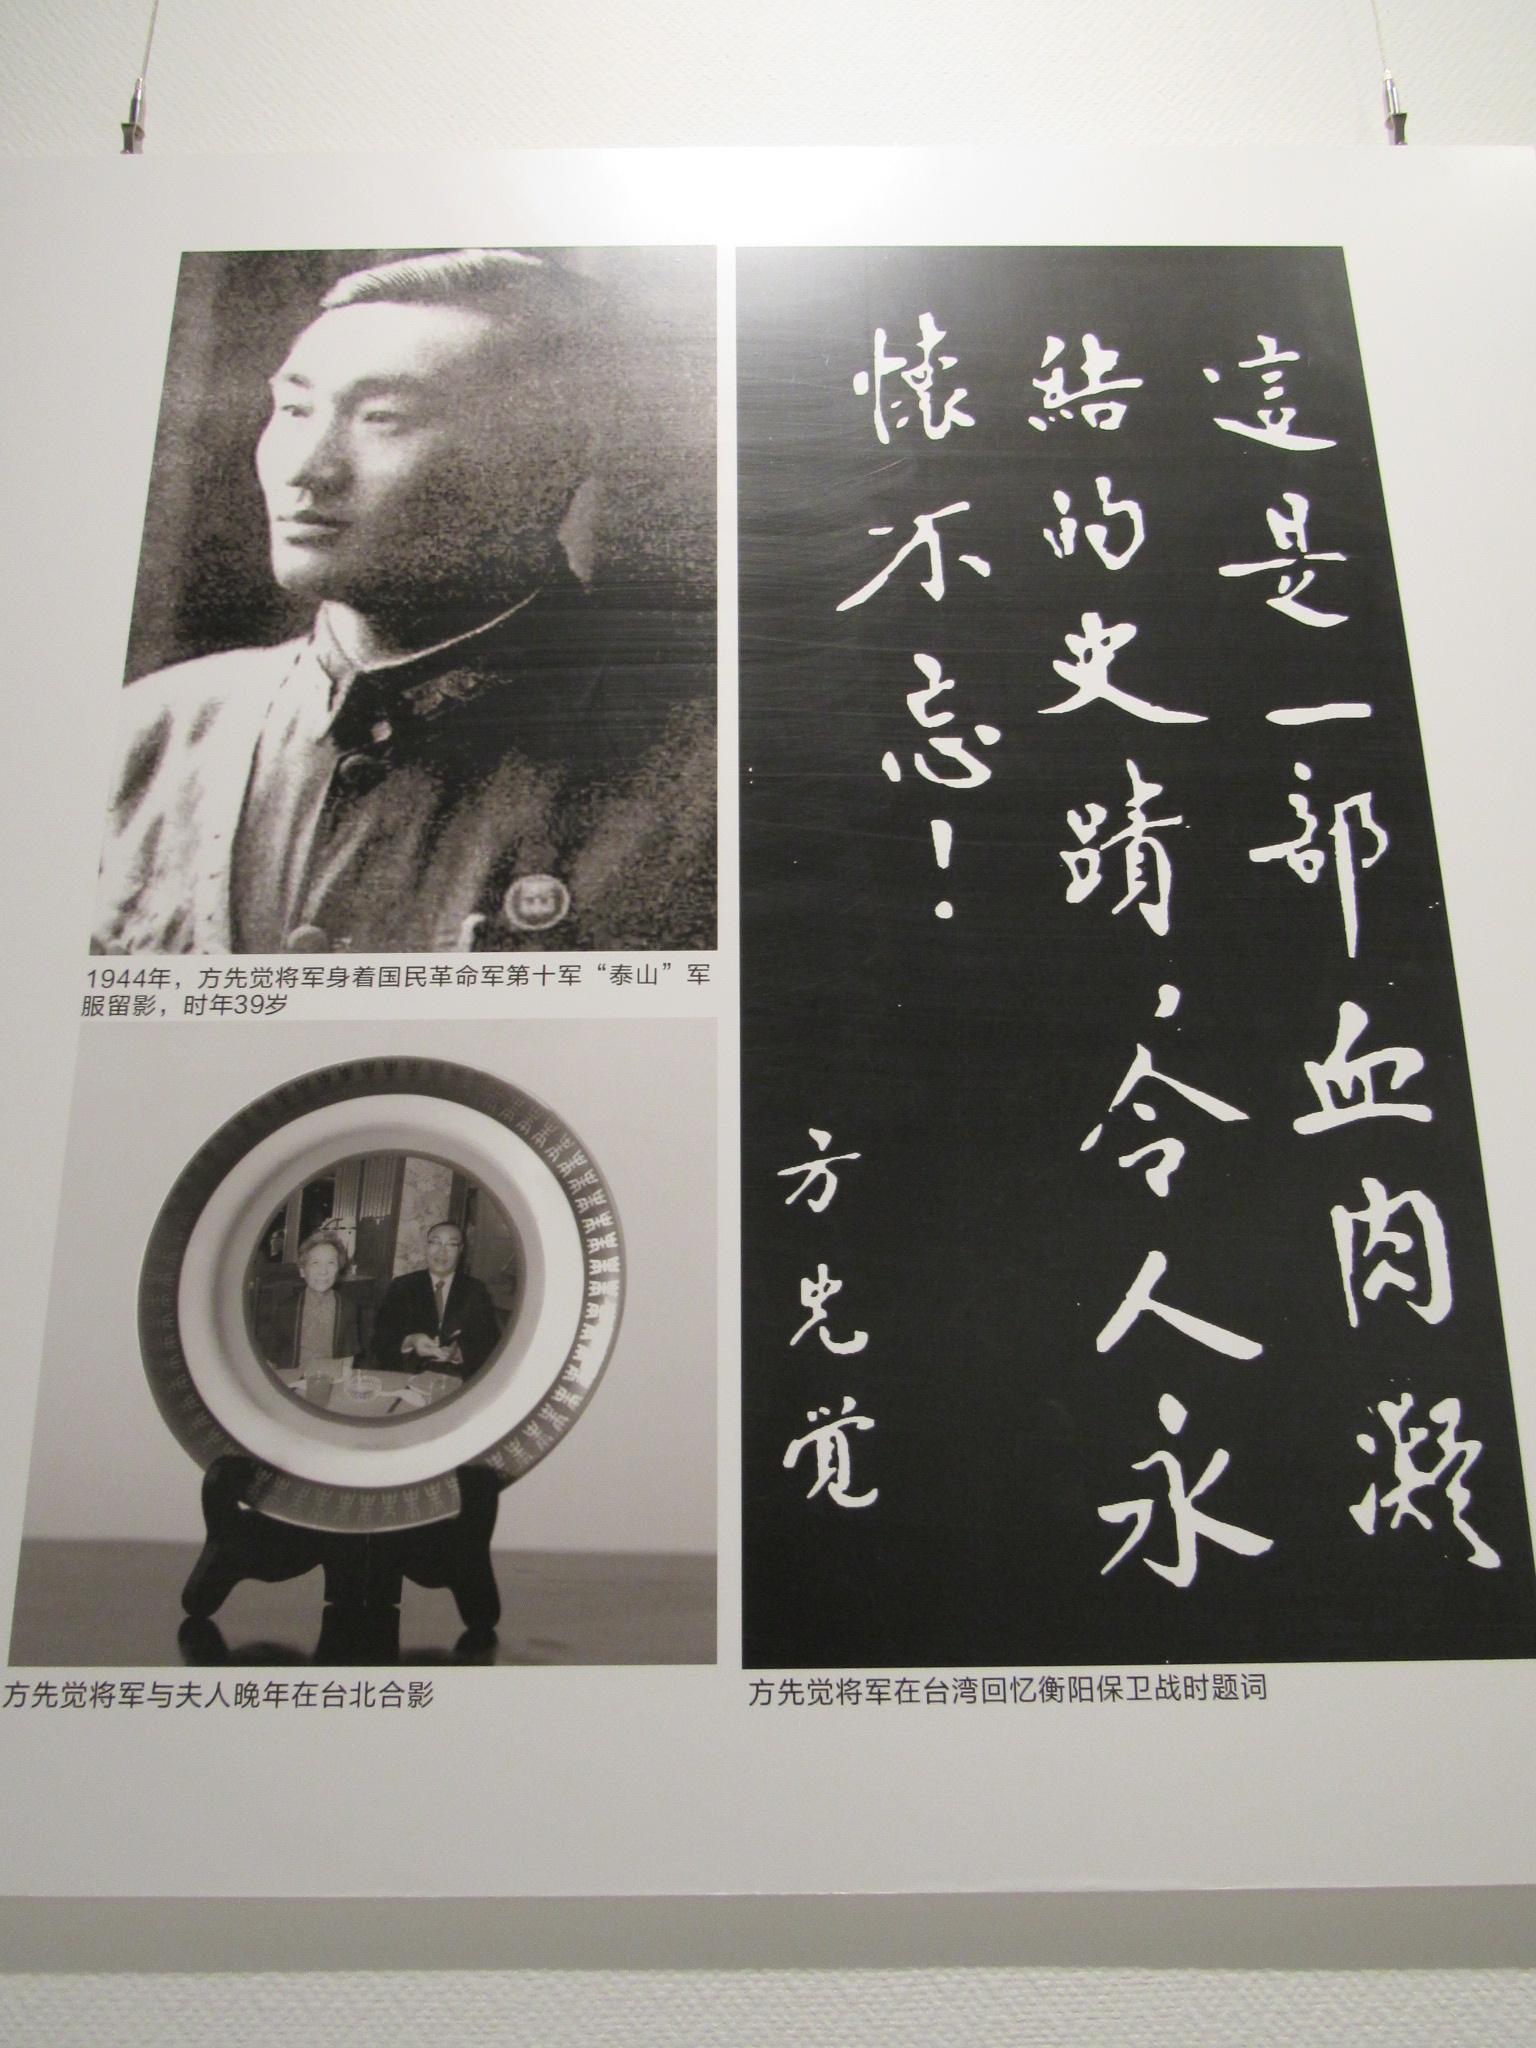 1944年，方先觉将军身着国民革命军第十军“泰山”军
服留影，时年39岁
方先觉将军与夫人晚年在台北合影
這是一部血肉凝
結的史蹟，令人永
懷不忘！
方先覚
方先觉将军在台湾回忆衡阳保卫战时题词